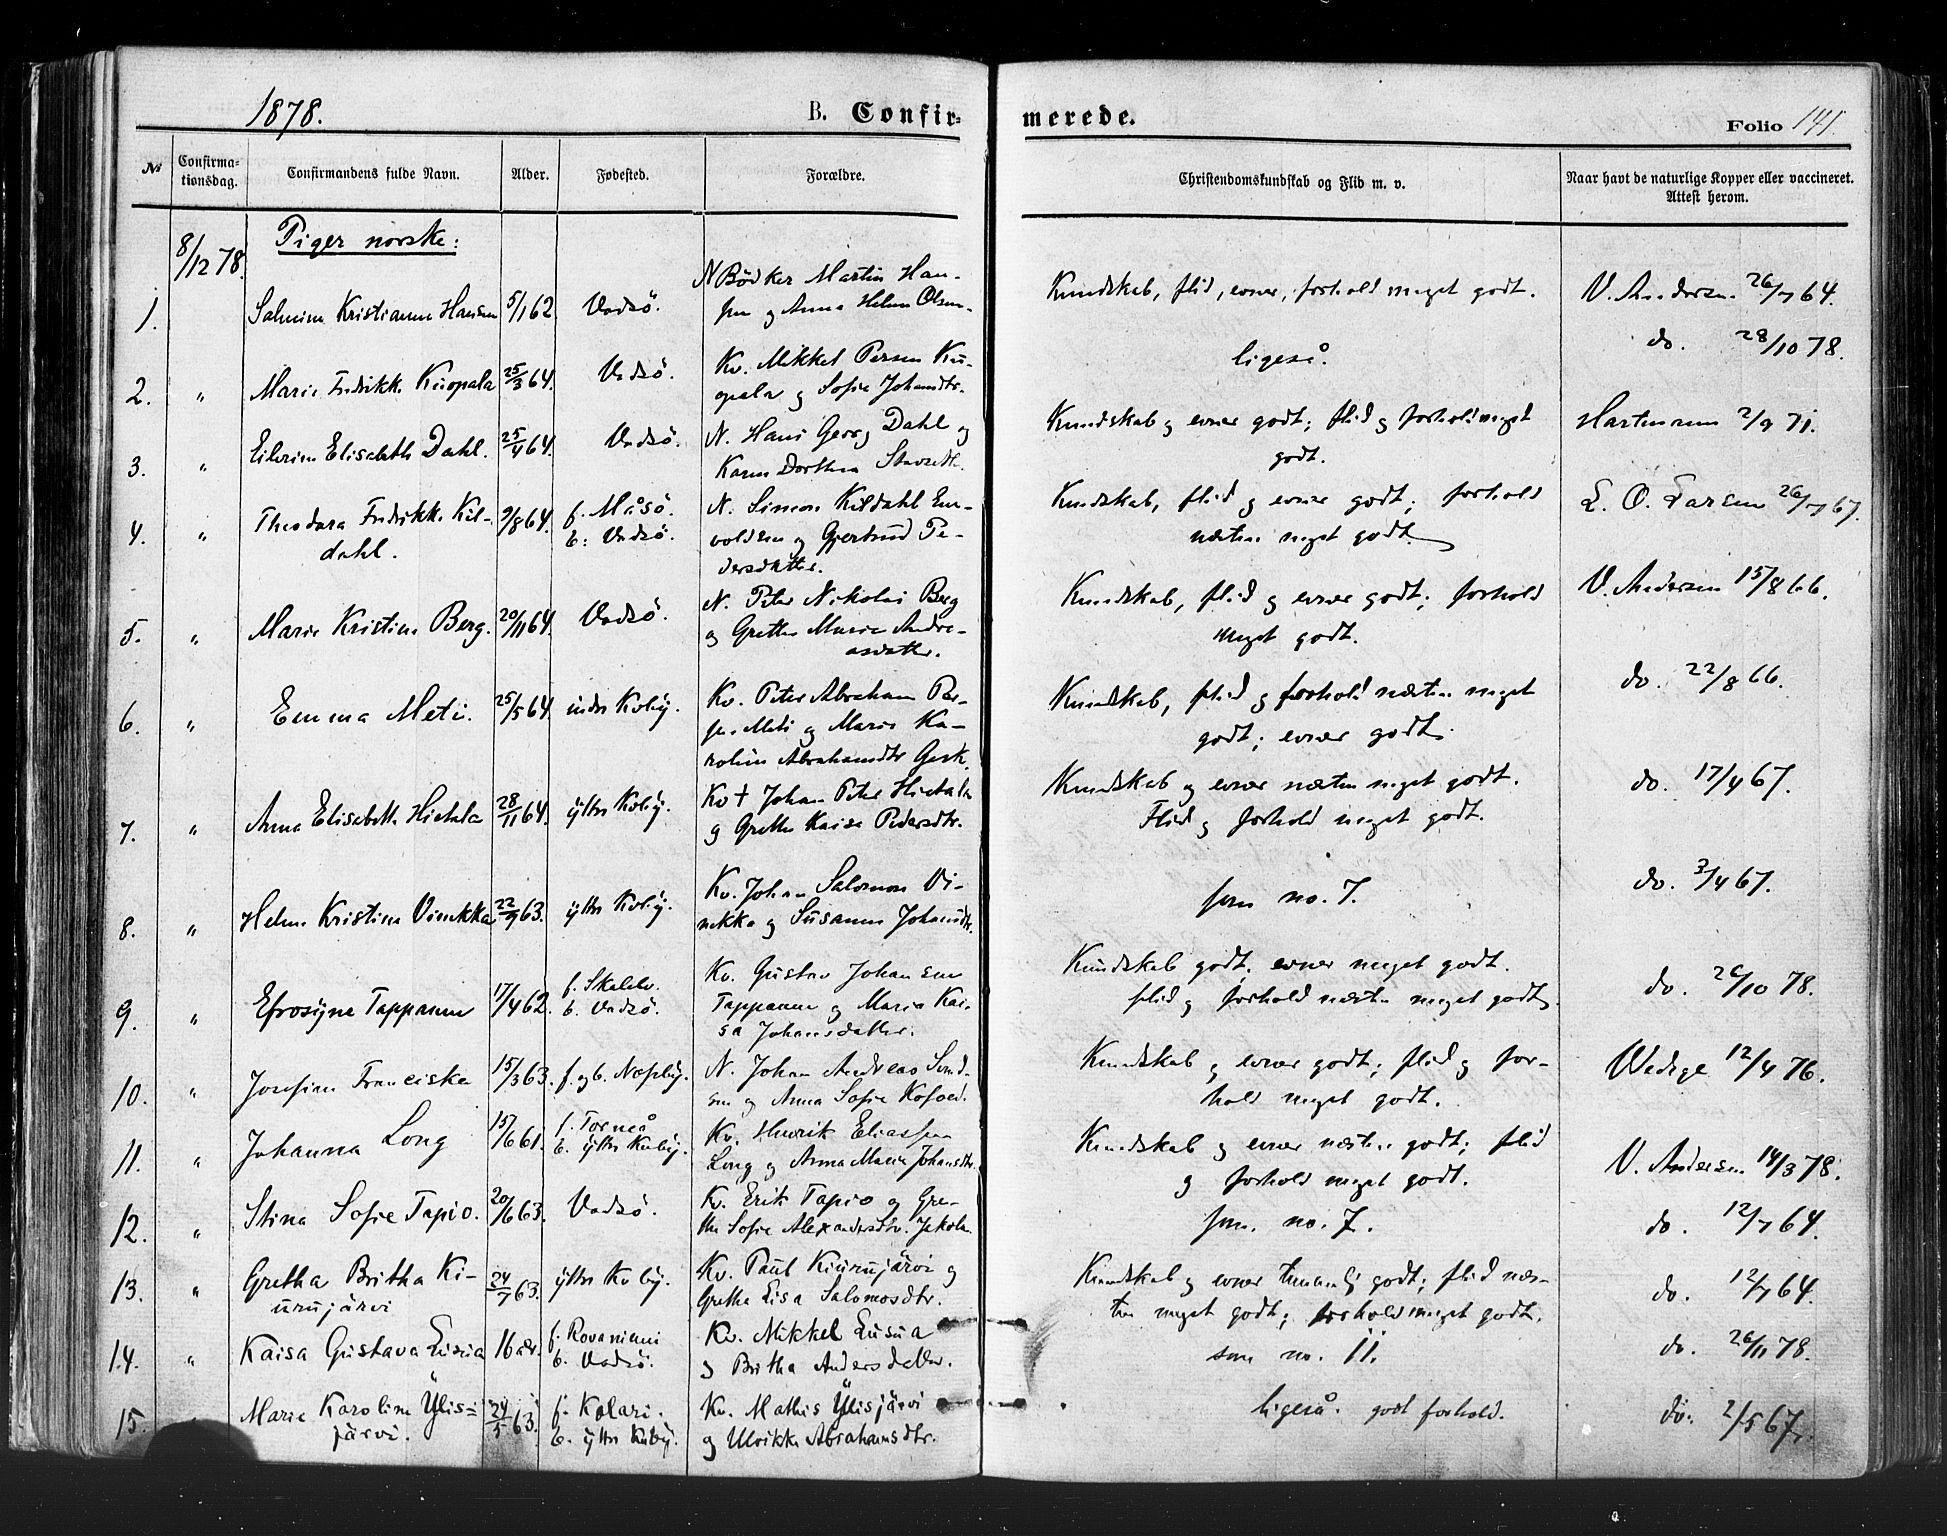 1878.
B. Confir-
merede.
Folio 141.
№
Confirma-
tionsdag.
Confirmandens fulde Navn.
Alder.
Fødested.
Forældre.
Christendomskundskab og Flid m. v.
Naar havt de naturlige Kopper eller vaccineret.
Attest herom.
Piger norske:
8/12 78.
1.
Salmine Kristianne Hansen
5/1 62
Vadsö.
N Bödker Martin Han-
sen og Anna Helene Olsen-
Kundskab, flid, evner, forhold meget godt.
V. Andersen 26/7 64.
2.
"
Marie Fredrikke Kuopala
25/3 64.
Vadsö.
Kv. Mikkel Persen Ku-
opala og Sofie Johansdtr.
ligeså.
do. 28/10 78.
3.
"
Eilerine Elisabeth Dahl.
25/4 64.
Vadsö.
N. Hans Georg Dahl og
Karen Dorthea
Kundskab og evner godt; flid og forhold meget
godt.
Hartmann 2/9 71.
4.
"
Theodora Fredrikke Kil-
dahl.
9/8 64.
f. Måsö.
b: Vadsö.
N. Simon Kildahl En-
voldsen og Gjertrud Pe-
dersdatter.
Kundskab, flid og evner godt; forhold
næsten meget godt.
L. O. Larsen 26/7 67.
5.
"
Marie Kristine Berg.
20/11 64.
Vadsö.
N. Peter Nikolai Berg
og Grethe Marie Andre-
asdatter.
Kundskab, flid og evner godt; forhold
meget godt.
V. Andersen 15/8 66.
6.
"
Emma Meti.
25/5 64.
indre Kvby.
Kv. Peter Abraham Per-
sen Meti og Marie Ka-
roline Abrahamsdtr
Kundskab, flid og forhold næsten meget
godt; evner godt.
do. 22/8 66.
7.
"
Anna Elisabeth Hietala
28/11 64.
yttre Kvby.
Kv † Johan Peter Hietala
og Grethe Kaisa Pedersdtr.
Kundskab og evner næsten meget godt.
Flid og forhold meget godt.
do. 17/4 67.
8.
"
Helene Kristine Vinikka
22/9 63.
yttre Kvby.
Kv. Johan Salomon Vi-
nikka og Susanne Johansdtr.
som no. 7.
do. 3/4 67.
9.
"
Efrosyne Tappanen
17/4 62.
f. Skalelv.
b. Vadsö.
Kv. Gustav Johansen
Tappanen og Maria Kai-
sa Johansdatter.
Kundskab godt, evner meget godt.
flid og forhold næsten meget godt.
do. 26/10 78.
10.
"
Josefine Franciska
15/3 63.
f. og b. Næsby.
N. Johan Andreas Svend-
sen og Anna Sofie Kofoed.
Kundskab og evner godt; flid og for-
hold meget godt.
Wedege 12/4 76.
11.
"
Johanna Long
15/6 61.
f. Torneå
b. yttre Kvby.
Kv. Henrik Eliassen
Long og Anna Maria Johansdtr.
Kundskab og evner næsten godt; flid
og forhold meget godt.
V. Andersen 14/3 78.
12.
"
Stina Sofie Tapio.
20/6 63.
Vadsö.
Kv. Erik Tapio og Gre-
the Sofie Alexandersdtr. Jakola.
som no. 7.
do. 12/7 64.
13.
"
Gretha Britha Ki-
urujärvi
24/7 63.
yttre Kvby.
Kv. Paul Kiurujärvi og
Gretha Lisa Salomosdtr.
Kundskab og evner temmelig godt; flid næs-
ten meget godt; forhold meget godt.
do. 12/7 64.
14.
"
Kaisa Gustava Lusua
16 år.
f. Rovaniemi
b. Vadsö.
Kv. Mikkel Lusua
og Britha Andersdatter.
som no. 11.
do. 26/11 78.
15.
"
Marie Karoline Ylis-
järvi.
24/5 63.
f. Kolari.
b. yttre Kvby.
Kv. Mathis Ylisjärvi
og Ulrikke Abrahamsdtr.
ligeså. godt forhold.
do. 2/5 67.